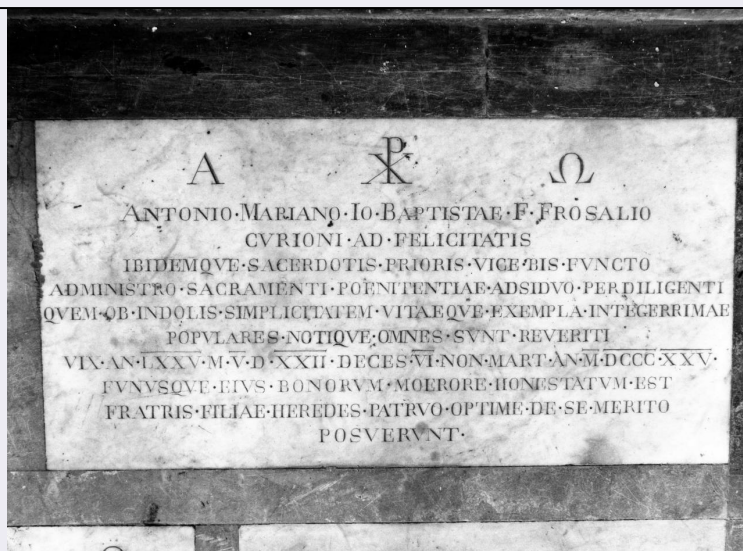 Α ☧ Ω
ANTONIO·MARIANO·IO·BAPTISTAE·F·FROSALIO
CVRIONI·AD·FELICITATIS
IBIDEMQVE·SACERDOTIS·PRIORIS·VICE·BIS·FVNCTO
ADMINISTRO·SACRAMENTI·POENITENTIAE·ADSIDVO·PERDILIGENTI
QVEM·OB·INDOLIS·SIMPLICITATEM·VITAEQVE·EXEMPLA·INTEGERRIMAE
POPVLARES·NOTIQVE·OMNES·SVNT·REVERITI
VIX·AN·LXXV·M·V·D·XXII·DECES·VI·NON·MART·AN·M·DCCC·XXV·
FVNVSQVE·EIVS·BONORVM·MOERORE·HONESTATVM·EST
FRATRIS·FILIAE·HEREDES·PATRVO·OPTIME·DE·SE·MERITO
POSVERVNT·